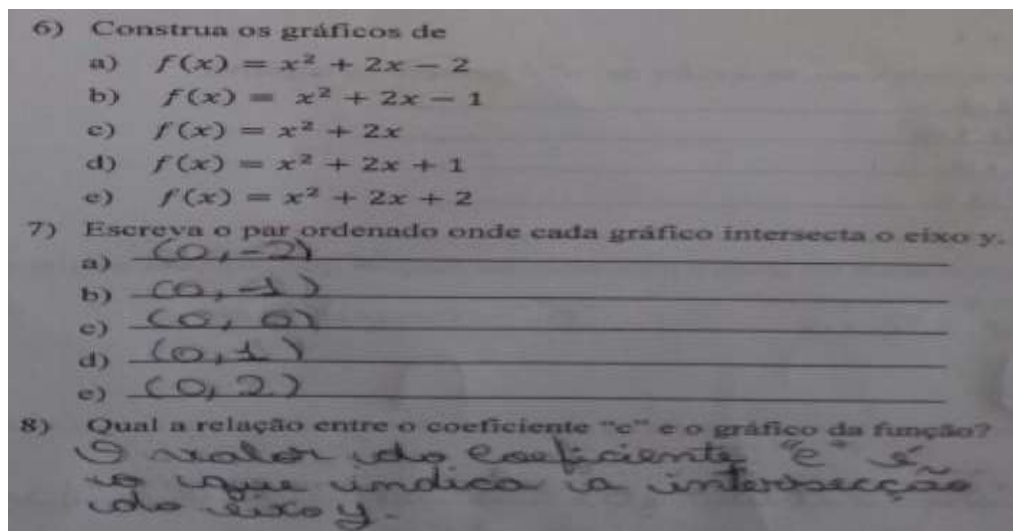 6) Construa os gráficos de
a) f(x) = x² + 2x − 2
b) f(x) = x² + 2x − 1
c) f(x) = x² + 2x
d) f(x) = x² + 2x + 1
e) f(x) = x² + 2x + 2
7) Escreva o par ordenado onde cada gráfico intersecta o eixo y.
a) (0,-2)
b) (0,-1)
c) (0, 0)
d) (0,1)
e) (0,2)
8) Qual a relação entre o coeficiente "c" e o gráfico da função?
O valor do coeficiente "c" é
o que indica a intersecção
do eixo y.